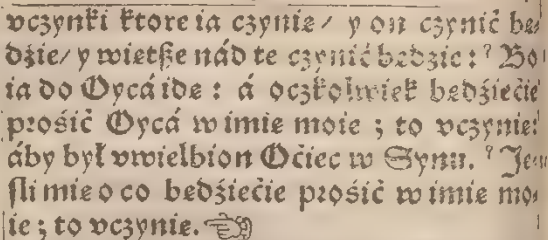 vczynki ktore ia czynie/ y on czynić bę⸗
dźie/ y wietße nád te czynić bedzie: ? Bo
ia do Oycá ide : á oczkolwiek bedźiećie
prośić Oycá w imie moie ; to vczynie:
áby był vwielbion Oćiec w Synu. ? Je⸗
ſli mie o co bedźiećie prośić w imie mo⸗
ie ; to vczynie. ☜